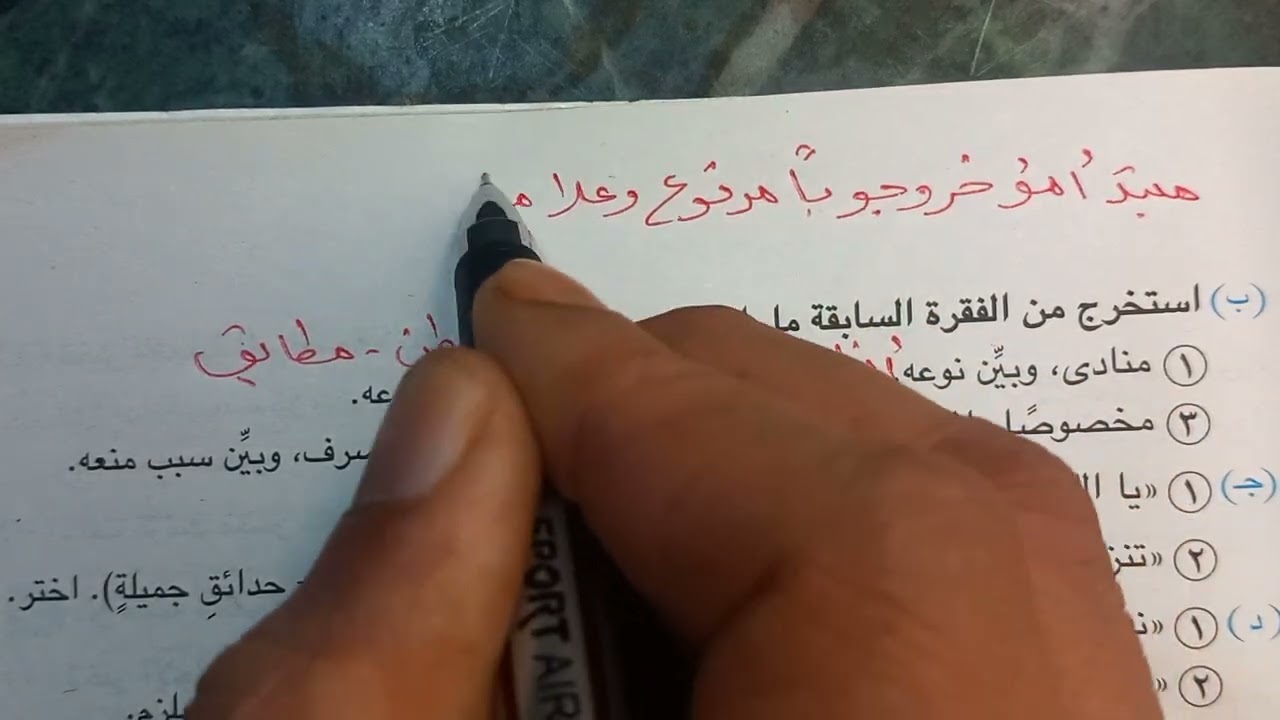 مبتدأ مؤخر وجوبًا مرفوع وعلام
(ب) استخرج من الفقرة السابقة ما
١ منادى، وبيِّن نوعه.
طن - مطابق
عه.
٣ مخصوصًا
صرف، وبيِّن سبب منعه.
(جـ) ١ «يا ا
٢ «تنز
حدائقِ جميلةٍ). اختر.
(د) ١ «ن
٢ «
يلزم.
FPORT AIR